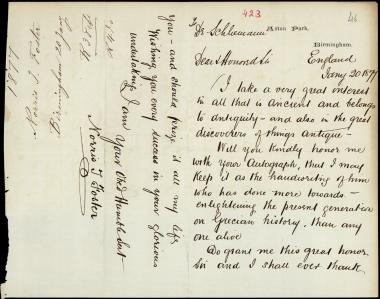 423
46
Aston Park,
Birmingham.
To Dr Schliemann
England
Dear & Honored Sir
Jany 20 1877
I take a very great interest
in all that is Ancient and belongs
to antiquity - and also in the great
discoverers of things antique -
Will you kindly honor me
with your Autograph, that I may
keep it as the handwriting of him
who has done more towards -
enlightening the present generation
on Grecian history, than any
one alive
Do grant me this great honor
Sir and I shall ever thank
you - and should prize it all my life
Wishing you every success in your glorious
undertaking I am Your Obdt Humble Sert
Norris T Foster
Norris T Foster
Birmingham
1877